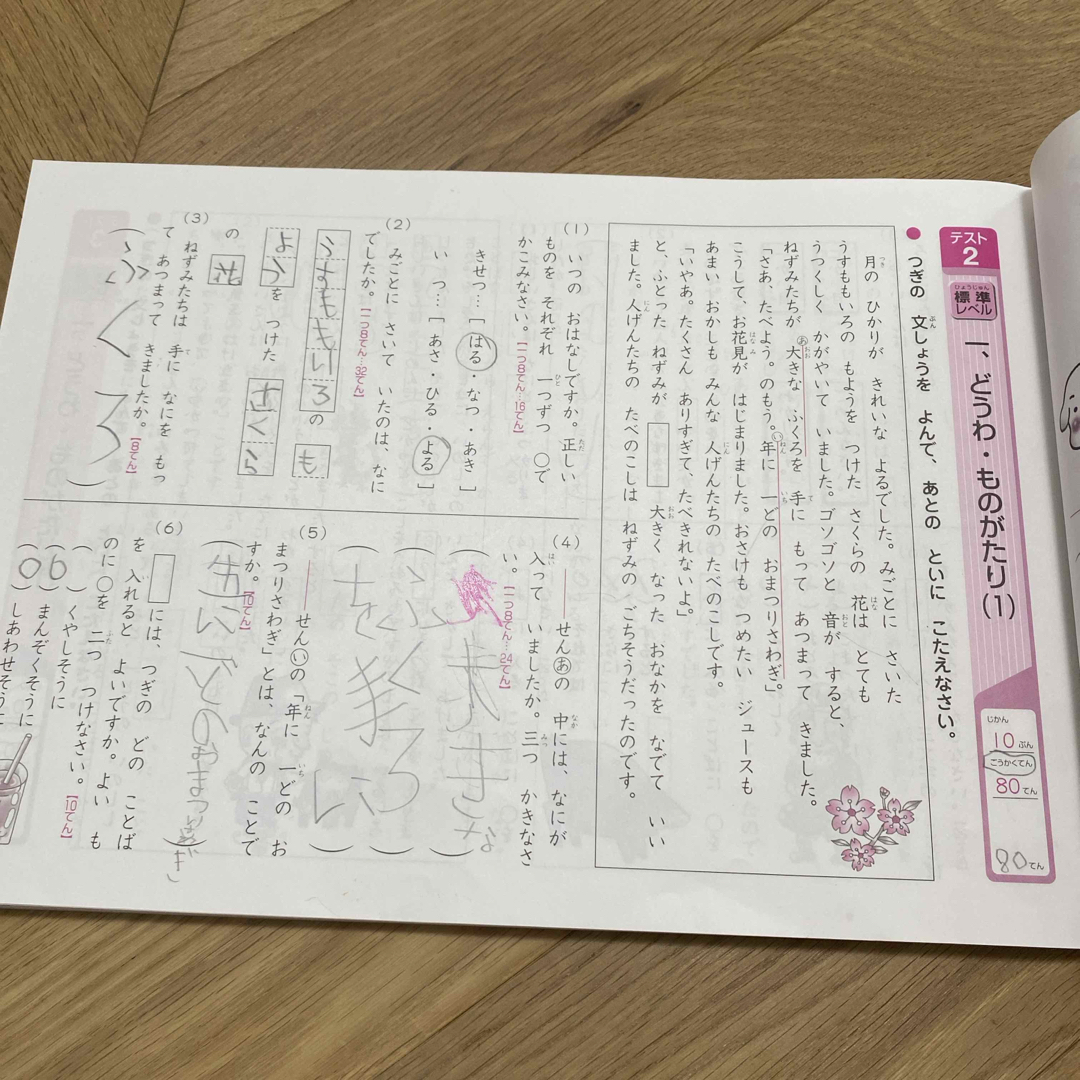 テスト2
ひょうじゅん
標準レベル
一、どうわ・ものがたり(1)
じかん
10ぷん
ごうかくてん
80てん
80てん
● つぎの 文しょうを よんで、あとの といに こたえなさい。
月の ひかりが きれいな よるでした。みごとに さいた
うすももいろの もようを つけた さくらの 花は とても
うつくしく かがやいて いました。ゴソゴソと 音が すると、
ねずみたちが あ大きな ふくろを 手に もって あつまって きました。
「さあ、たべよう。のもう。い年に 一どの おまつりさわぎ」。
こうして、お花見が はじまりました。おさけも つめたい ジュースも
あまい おかしも みんな 人げんたちの たべのこしです。
「いやあ。たくさん ありすぎて、たべきれないよ。
と、ふとった ねずみが □ 大きく なった おなかを なでて いい
ました。人げんたちの たべのこしは ねずみの ごちそうだったのです。
(1) いつの おはなしですか。正しい
ものを それぞれ 一つずつ ○で
かこみなさい。【一つ8てん…16てん】
きせつ…[ はる・なつ・あき ]
い つ…[ あさ・ひる・よる ]
(2) みごとに さいて いたのは、なに
でしたか。【一つ8てん…32てん】
うすももいろ の も
ようを つけた さくら
の 花
(3) ねずみたちは 手に なにを もっ
て あつまって きましたか。【8てん】
(ふくろ)
(4) ――せんあの 中には、なにが
入って いましたか。三つ かきなさ
い。【一つ8てん…24てん】
(5) ――せんいの「年に 一どの お
まつりさわぎ」とは、なんの ことで
すか。【10てん】
(6) □には、つぎの どの ことば
を 入れると よいですか。よい も
のに ○を 二つ つけなさい。【10てん】
( ) くやしそうに
(○) まんぞくそうに
(○) しあわせそうに